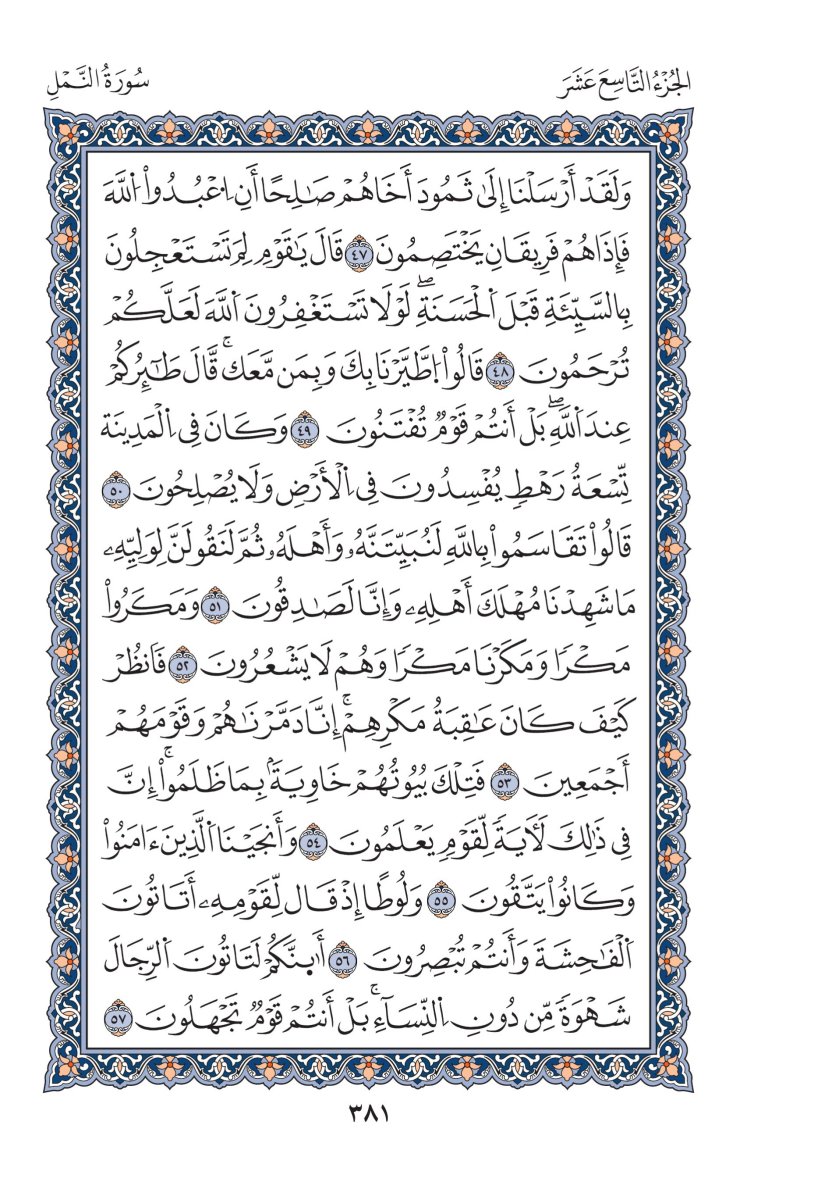 الجُزْءُ التَّاسِعَ عَشَرَ
سُورَةُ النَّمْلِ
وَلَقَدْ أَرْسَلْنَا إِلَىٰ ثَمُودَ أَخَاهُمْ صَٰلِحًا أَنِ اِعْبُدُواْ اللَّهَ
فَإِذَا هُمْ فَرِيقَانِ يَخْتَصِمُونَ ٤٧ قَالَ يَٰقَوْمِ لِمَ تَسْتَعْجِلُونَ
بِالسَّيِّئَةِ قَبْلَ اَلْحَسَنَةِۖ لَوْلَا تَسْتَغْفِرُونَ اَللَّهَ لَعَلَّكُمْ
تُرْحَمُونَ ٤٨ قَالُواْ اِطَّيَّرْنَا بِكَ وَبِمَن مَّعَكَۚ قَّالَ طَٰٓئِرُكُمْ
عِندَ اَللَّهِۖ بَلْ أَنتُمْ قَوْمٌ تُفْتَنُونَ ٤٩ وَكَانَ فِي اِلْمَدِينَة
تِّسْعَةُ رَهْطٍ يُفْسِدُونَ فِي اِلْأَرْضِ وَلَا يُصْلِحُونَ ٥٠
قَالُواْ تَقَاسَمُواْ بِاللَّهِ لَنُبَيِّتَنَّهُۥ وَأَهْلَهُۥ ثُمَّ لَنَقُولَنَّ لِوَلِيِّهِۦ
مَا شَهِدْنَا مُهْلَكَ أَهْلِهِۦ وَإِنَّا لَصَٰدِقُونَ ٥١ وَمَكَرُواْ
مَكْرًا وَمَكَرْنَا مَكْرًا وَهُمْ لَا يَشْعُرُونَ ٥٢ فَانظُرْ
كَيْفَ كَانَ عَٰقِبَةُ مَكْرِهِمْۚ إِنَّا دَمَّرْنَٰهُمْ وَقَوْمَهُمْ
أَجْمَعِينَ ٥٣ فَتِلْكَ بُيُوتُهُمْ خَاوِيَةَۢ بِمَا ظَلَمُواْۚ إِنَّ
فِي ذَٰلِكَ لَأٓيَةً لِّقَوْمٍ يَعْلَمُونَ ٥٤ وَأَنجَيْنَا اَلَّذِينَ ءَامَنُواْ
وَكَانُواْ يَتَّقُونَ ٥٥ وَلُوطًا إِذْ قَال لِّقَوْمِهِۦ أَتَاتُونَ
اَلْفَٰحِشَةَ وَأَنتُمْ تُبْصِرُونَ ٥٦ أَٰئِنَّكُمْ لَتَاتُونَ اَلرِّجَالَ
شَهْوَةً مِّن دُونِ اِلنِّسَآءِۚ بَلْ أَنتُمْ قَوْمٌ تَجْهَلُونَ ٥٧
٣٨١